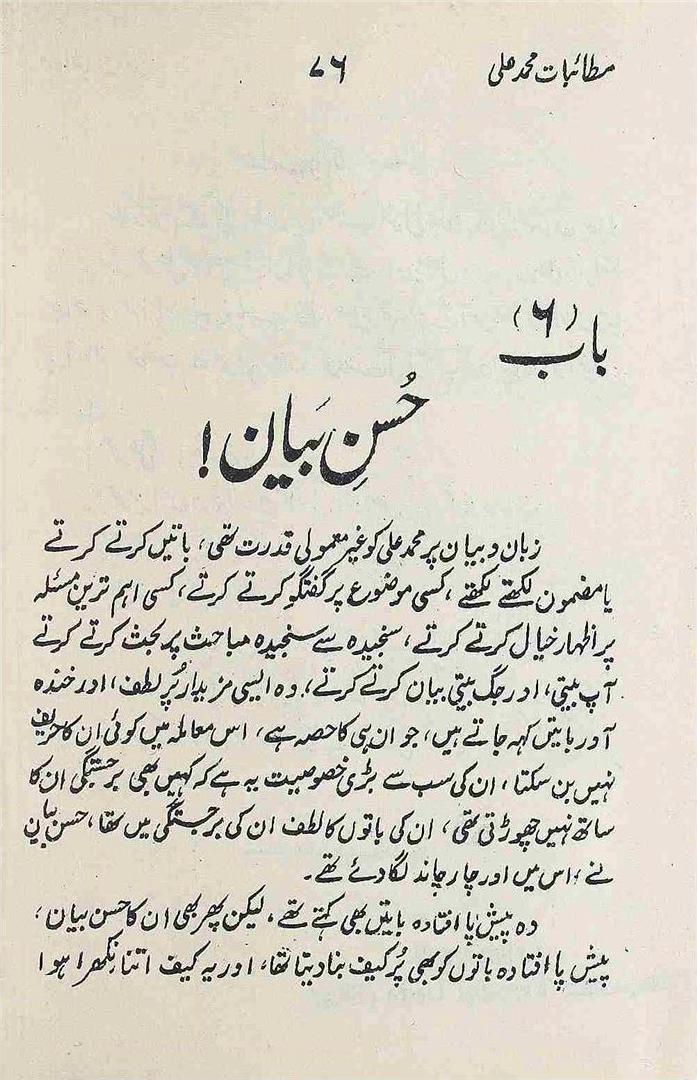 مطائبات محمد علی
۷۶
باب (۶)
حُسنِ بَیان!
زبان و بیان پر محمد علی کو غیر معمولی قدرت تھی، باتیں کرتے کرتے
یا مضمون لکھتے لکھتے، کسی موضوع پر گفتگو کرتے کرتے، کسی اہم ترین مسئلہ
پر اظہار خیال کرتے کرتے، سنجیدہ سے سنجیدہ مباحث پر بحث کرتے کرتے
آپ بیتی، اور جگ بیتی بیان کرتے کرتے، وہ ایسی مزیدار پُر لطف، اور خندہ
آور باتیں کہہ جاتے ہیں، جو ان ہی کا حصہ ہے، اس معاملہ میں کوئی ان کا حریف
نہیں بن سکتا، ان کی سب سے بڑی خصوصیت یہ ہے کہ کہیں بھی برجستگی ان کا
ساتھ نہیں چھوڑتی تھی، ان کی باتوں کا لطف ان کی برجستگی میں تھا، حسن بیان
نے، اس میں اور چار چاند لگا دئے تھے۔
وہ پیش پا افتادہ باتیں بھی کہتے تھے، لیکن پھر بھی ان کا حسن بیان،
پیش پا افتادہ باتوں کو بھی پُر کیف بنا دیتا تھا، اور یہ کیف اتنا نکھرا ہوا